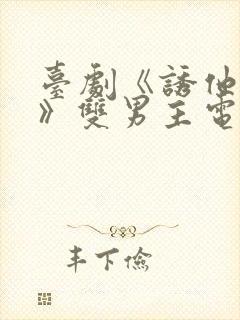 臺劇《誘他
》雙男主電
丰下儉